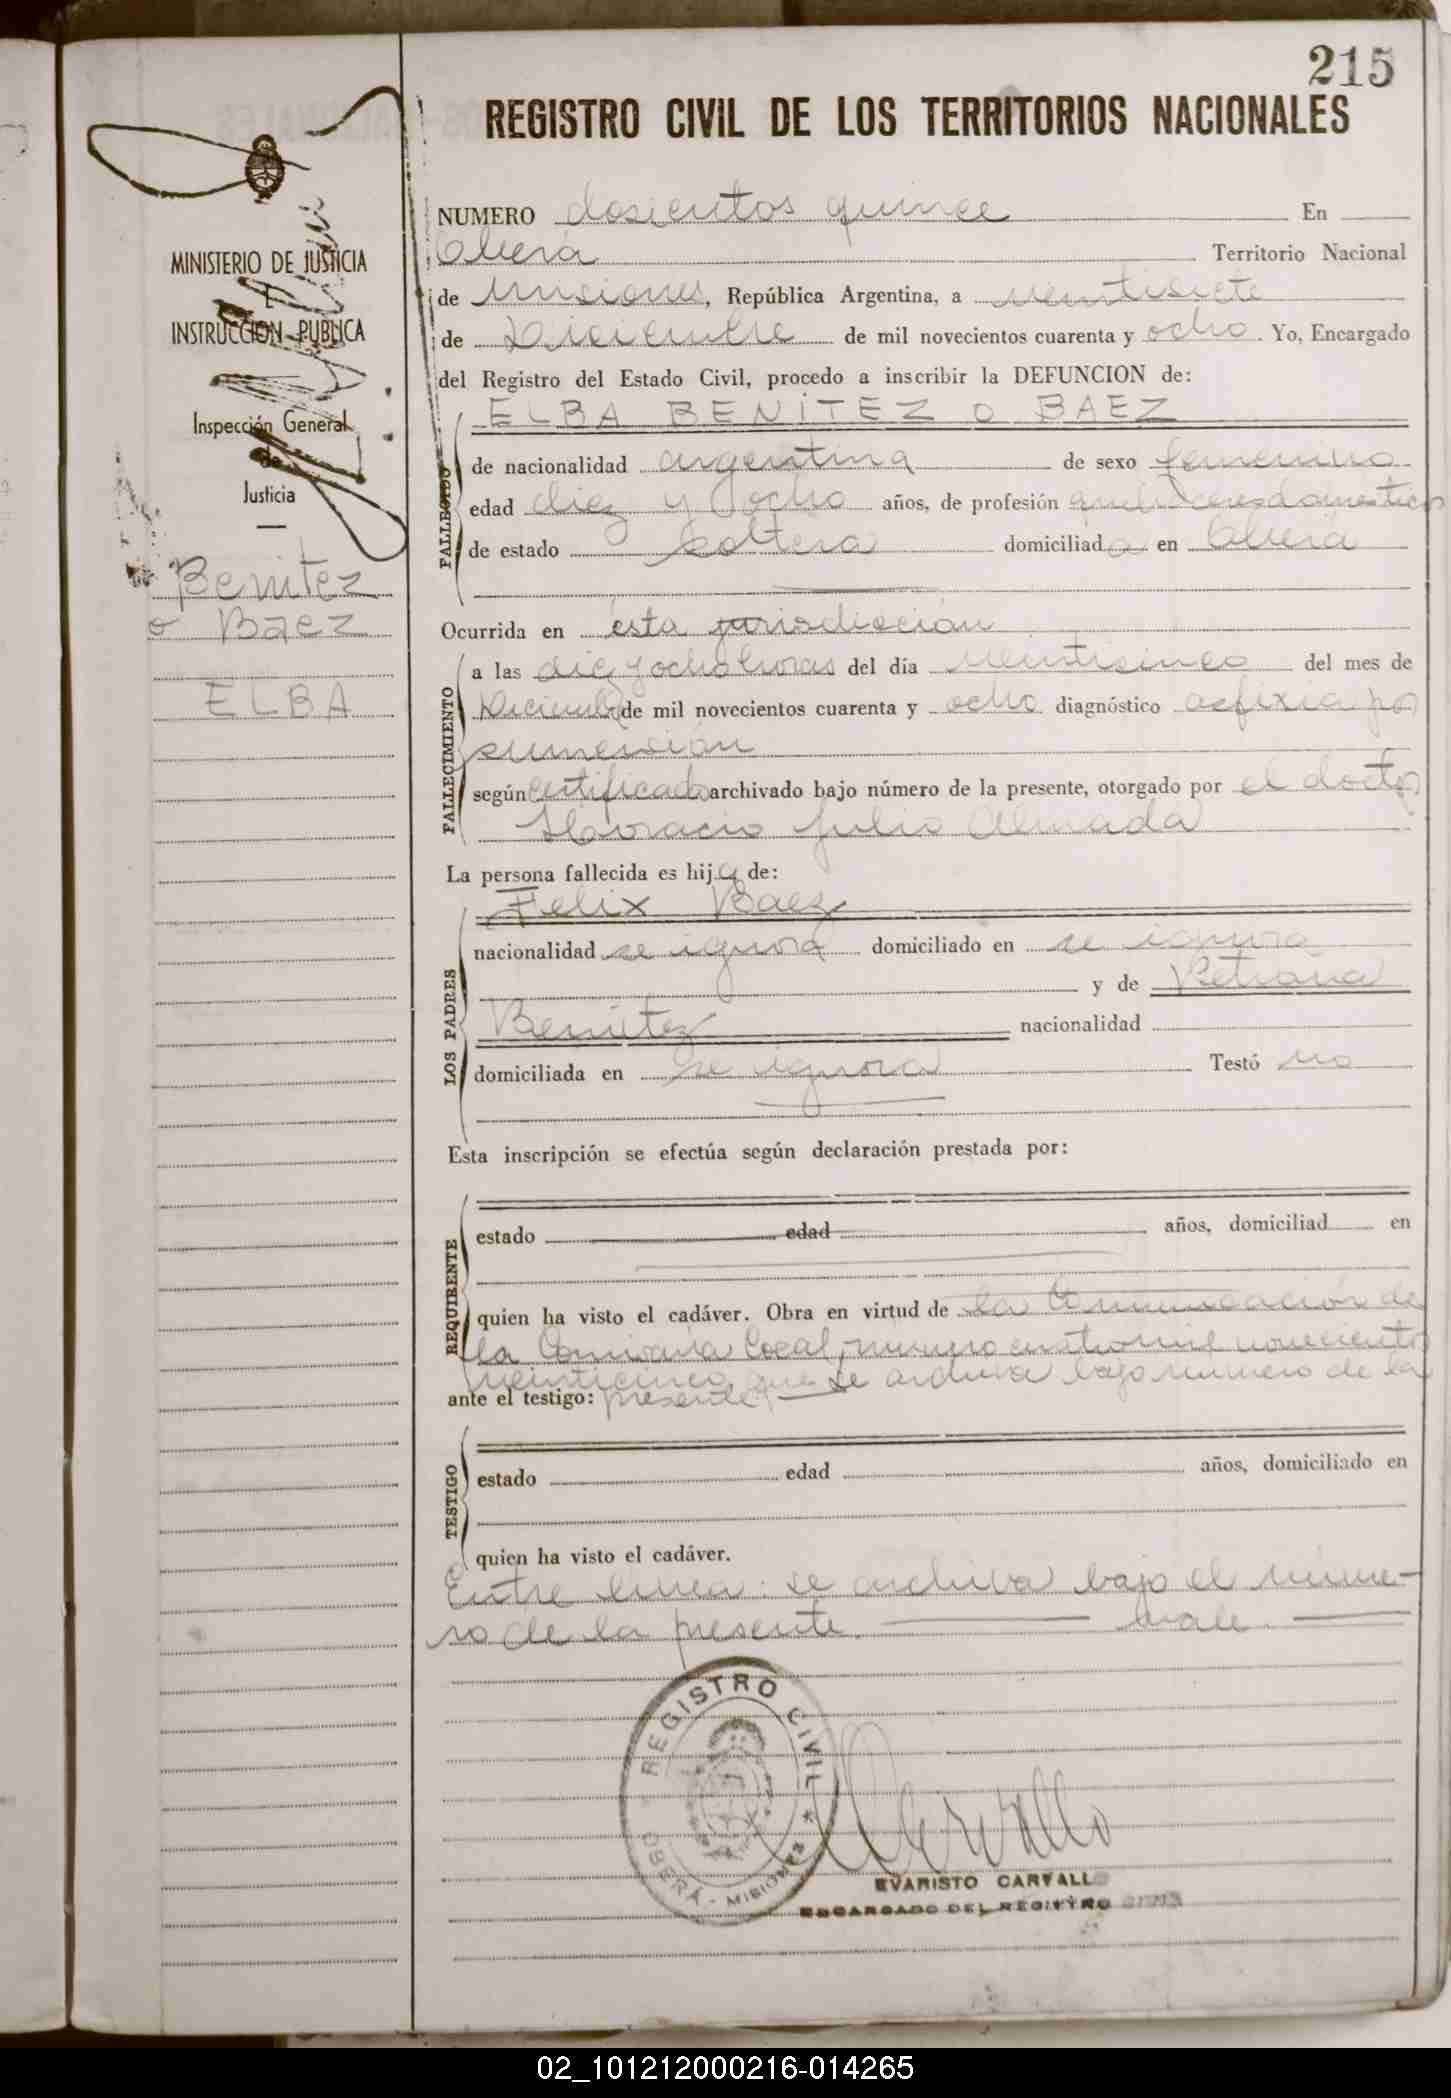 215
REGISTRO CIVIL DE LOS TERRITORIOS NACIONALES
MINISTERIO DE JUSTICIA
E
INSTRUCCIÓN PUBLICA
Inspección General
de
Justicia
Benitez
o Baez
ELBA
NUMERO dosientos quince En
Oberá Territorio Nacional
de Misiones, República Argentina, a veintisiete
de Diciembre de mil novecientos cuarenta y ocho. Yo, Encargado
del Registro del Estado Civil, procedo a inscribir la DEFUNCION de:
ELBA BENITEZ O BAEZ
FALLECIDO
de nacionalidad argentina de sexo femenino
edad diez y ocho años, de profesión quehaceres domesticos
de estado soltera domiciliada en Oberá
Ocurrida en ésta jurisdicción
FALLECIMIENTO
a las diez y ocho horas del día veintisinco del mes de
Diciembre de mil novecientos cuarenta y ocho diagnóstico asfixia por
sumersión
según certificado archivado bajo número de la presente, otorgado por el doctor
Horacio Julio Almada
La persona fallecida es hija de:
LOS PADRES
Felix Baez
nacionalidad se ignora domiciliado en se ignora
y de Petrona
Benitez nacionalidad
domiciliada en se ignora Testó no
Esta inscripción se efectúa según declaración prestada por:
REQUIRENTE
estado edad años, domiciliad en
quien ha visto el cadáver. Obra en virtud de la Comunicación de
la Comisaría local, numero cuatro mil novecientos
veinticinco que se archiva bajo numero de la
ante el testigo: presente
TESTIGO
estado edad años, domiciliado en
quien ha visto el cadáver.
Entre linea: se archiva bajo el núme-
ro de la presente. vale.
REGISTRO CIVIL
OBERÁ - MISIONES
Carvallo
EVARISTO CARVALLO
ENCARGADO DEL REGISTRO CIVIL
02_101212000216-014265